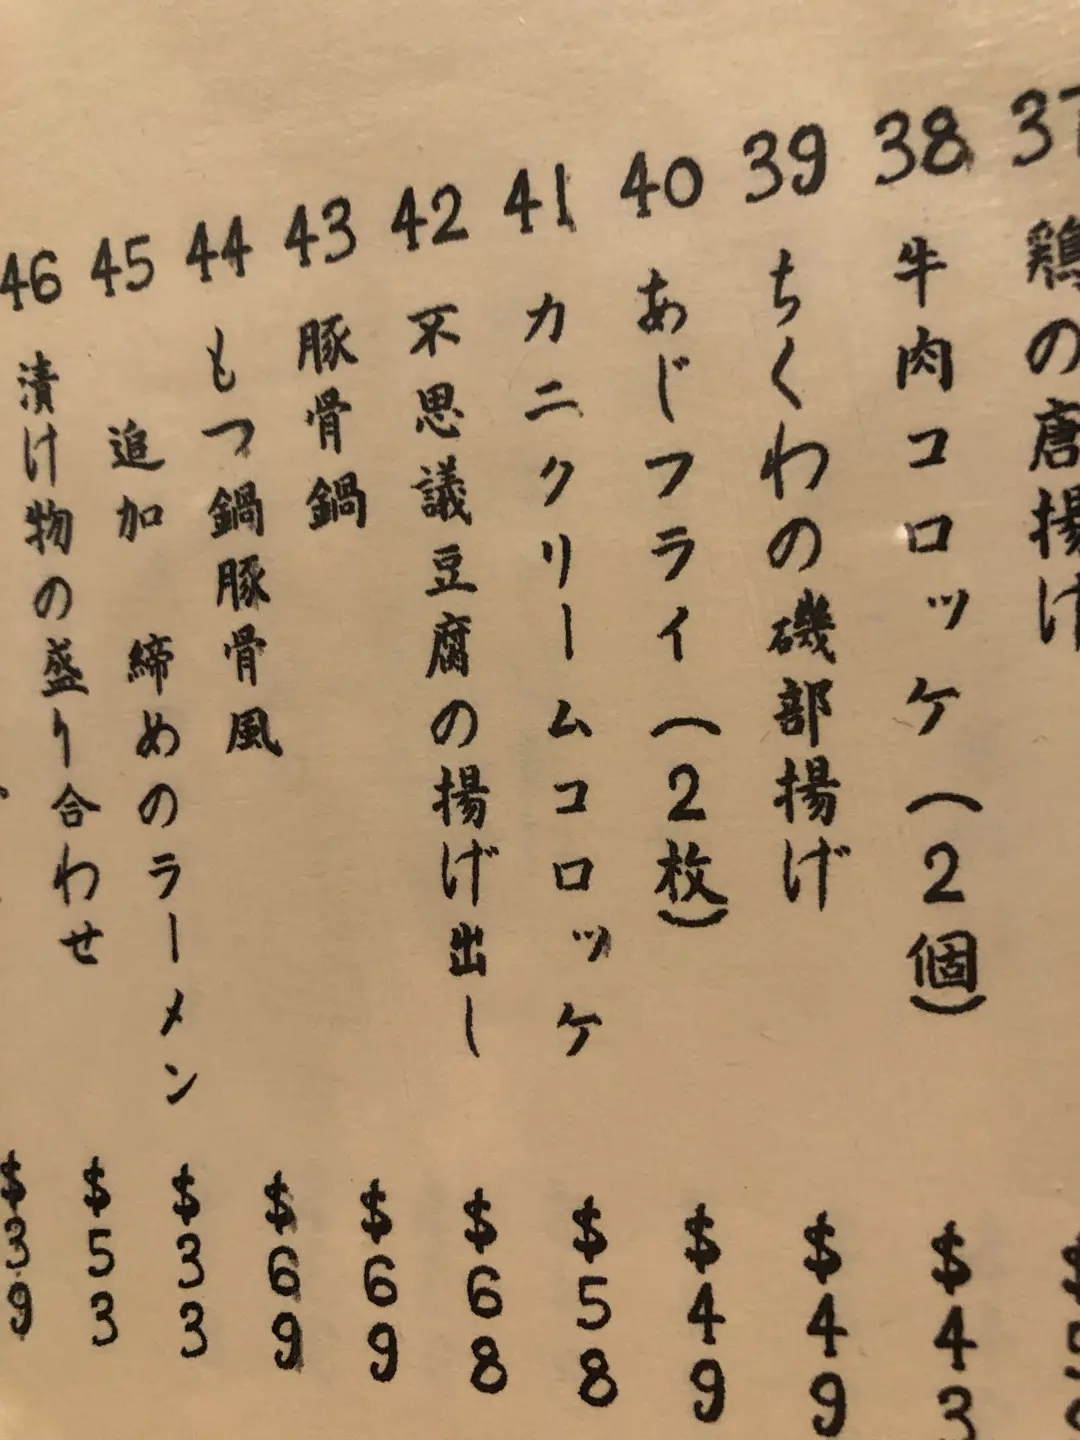 37 鶏の唐揚げ
38 牛肉コロッケ（2個） $43
39 ちくわの磯部揚げ $49
40 あじフライ（2枚） $49
41 カニクリームコロッケ $58
42 不思議豆腐の揚げ出し $68
43 豚骨鍋 $69
44 もつ鍋豚骨風 $69
45 追加 締めのラーメン $33
46 漬け物の盛り合わせ $53
$39